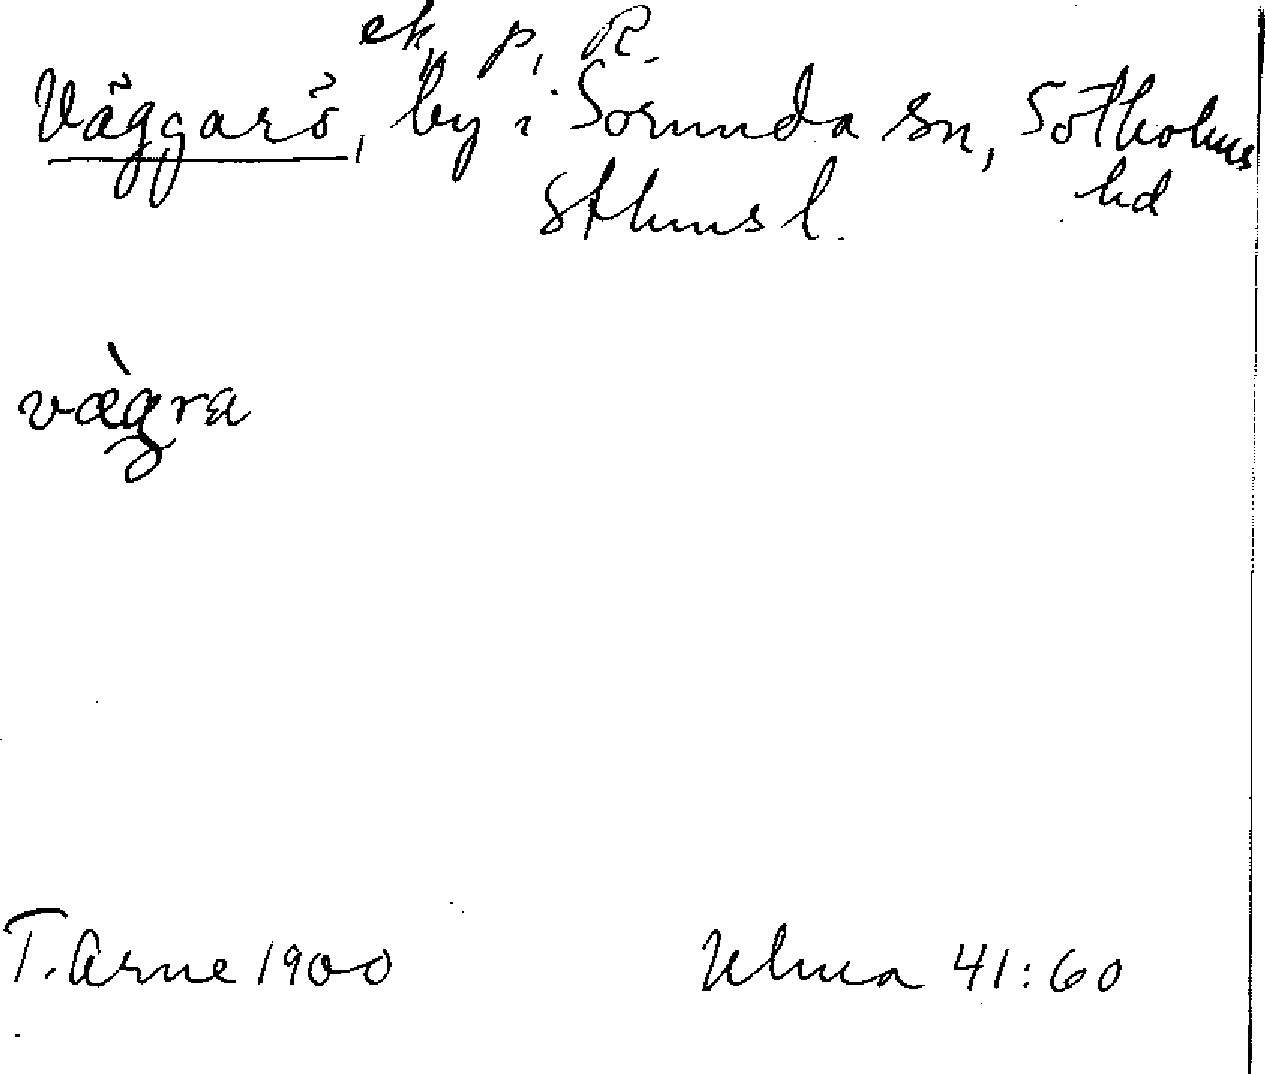 ek, p, R.
Väggarö, by i Sorunda sn, Sotholms
hd
Sthms l.
vægra
T. Arne 1900
Ulma 41:60